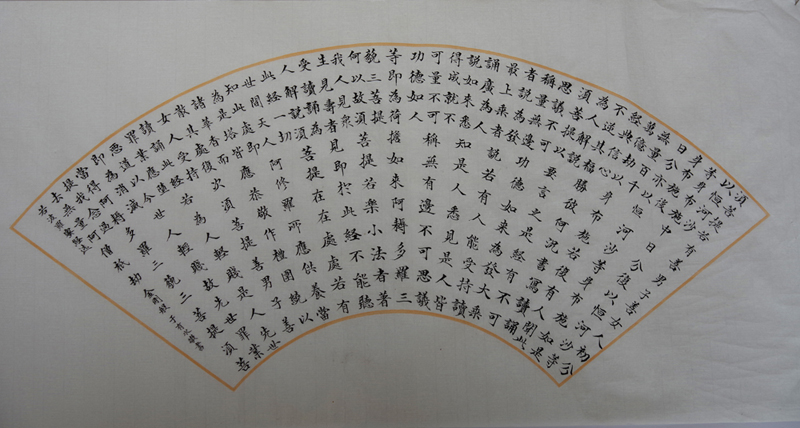 須菩提若有善男子善女人初日分
以恒河沙
等身布施中日分復以恒河沙等
身布施後
日分亦以恒河沙等身布施如是
無量百千
萬億劫以身布施若復有人聞此
經典信心
不逆其福勝彼何況書寫受持讀誦
為人解說
須菩提以要言之是經有不可
思議不可
稱量無邊功德如來為發大乘
者說為發
最上乘者說若有人能受持讀
誦廣為人
說如來悉知是人悉見是人皆
得成就不
可量不可稱無有邊不可思議
功德如是人
等即為荷擔如來阿耨多羅三
藐三菩提
何以故須菩提若樂小法者著
我見人見眾
生見壽者見即於此經不能聽
受讀誦為
人解說須菩提在在處處若有
此經一切
世間天人阿修羅所應供養當
知此處即
為是塔皆應恭敬作禮圍繞以
諸華香而
散其處復次須菩提善男子善
女人受持
讀誦此經若為人輕賤是人先世
罪業應墮
惡道以今世人輕賤故先世罪業
即為消滅
當得阿耨多羅三藐三菩提須菩
提我念過
去無量阿僧祇劫